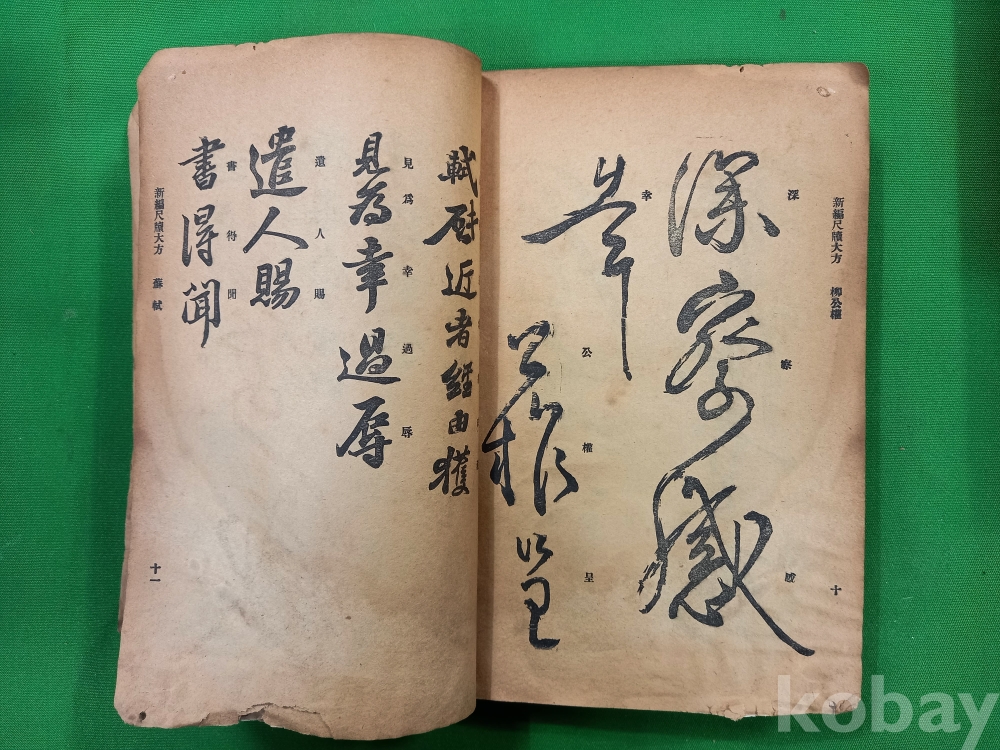 新編尺牘大方 柳公權
十
深察感
深 察 感
幸
幸
公權呈
公 權 呈
軾啓近者經由獲
見為幸過辱
見 爲 幸 過 辱
遣人賜
遣 人 賜
書得聞
書 得 聞
新編尺牘大方 蘇軾
十一
kobay